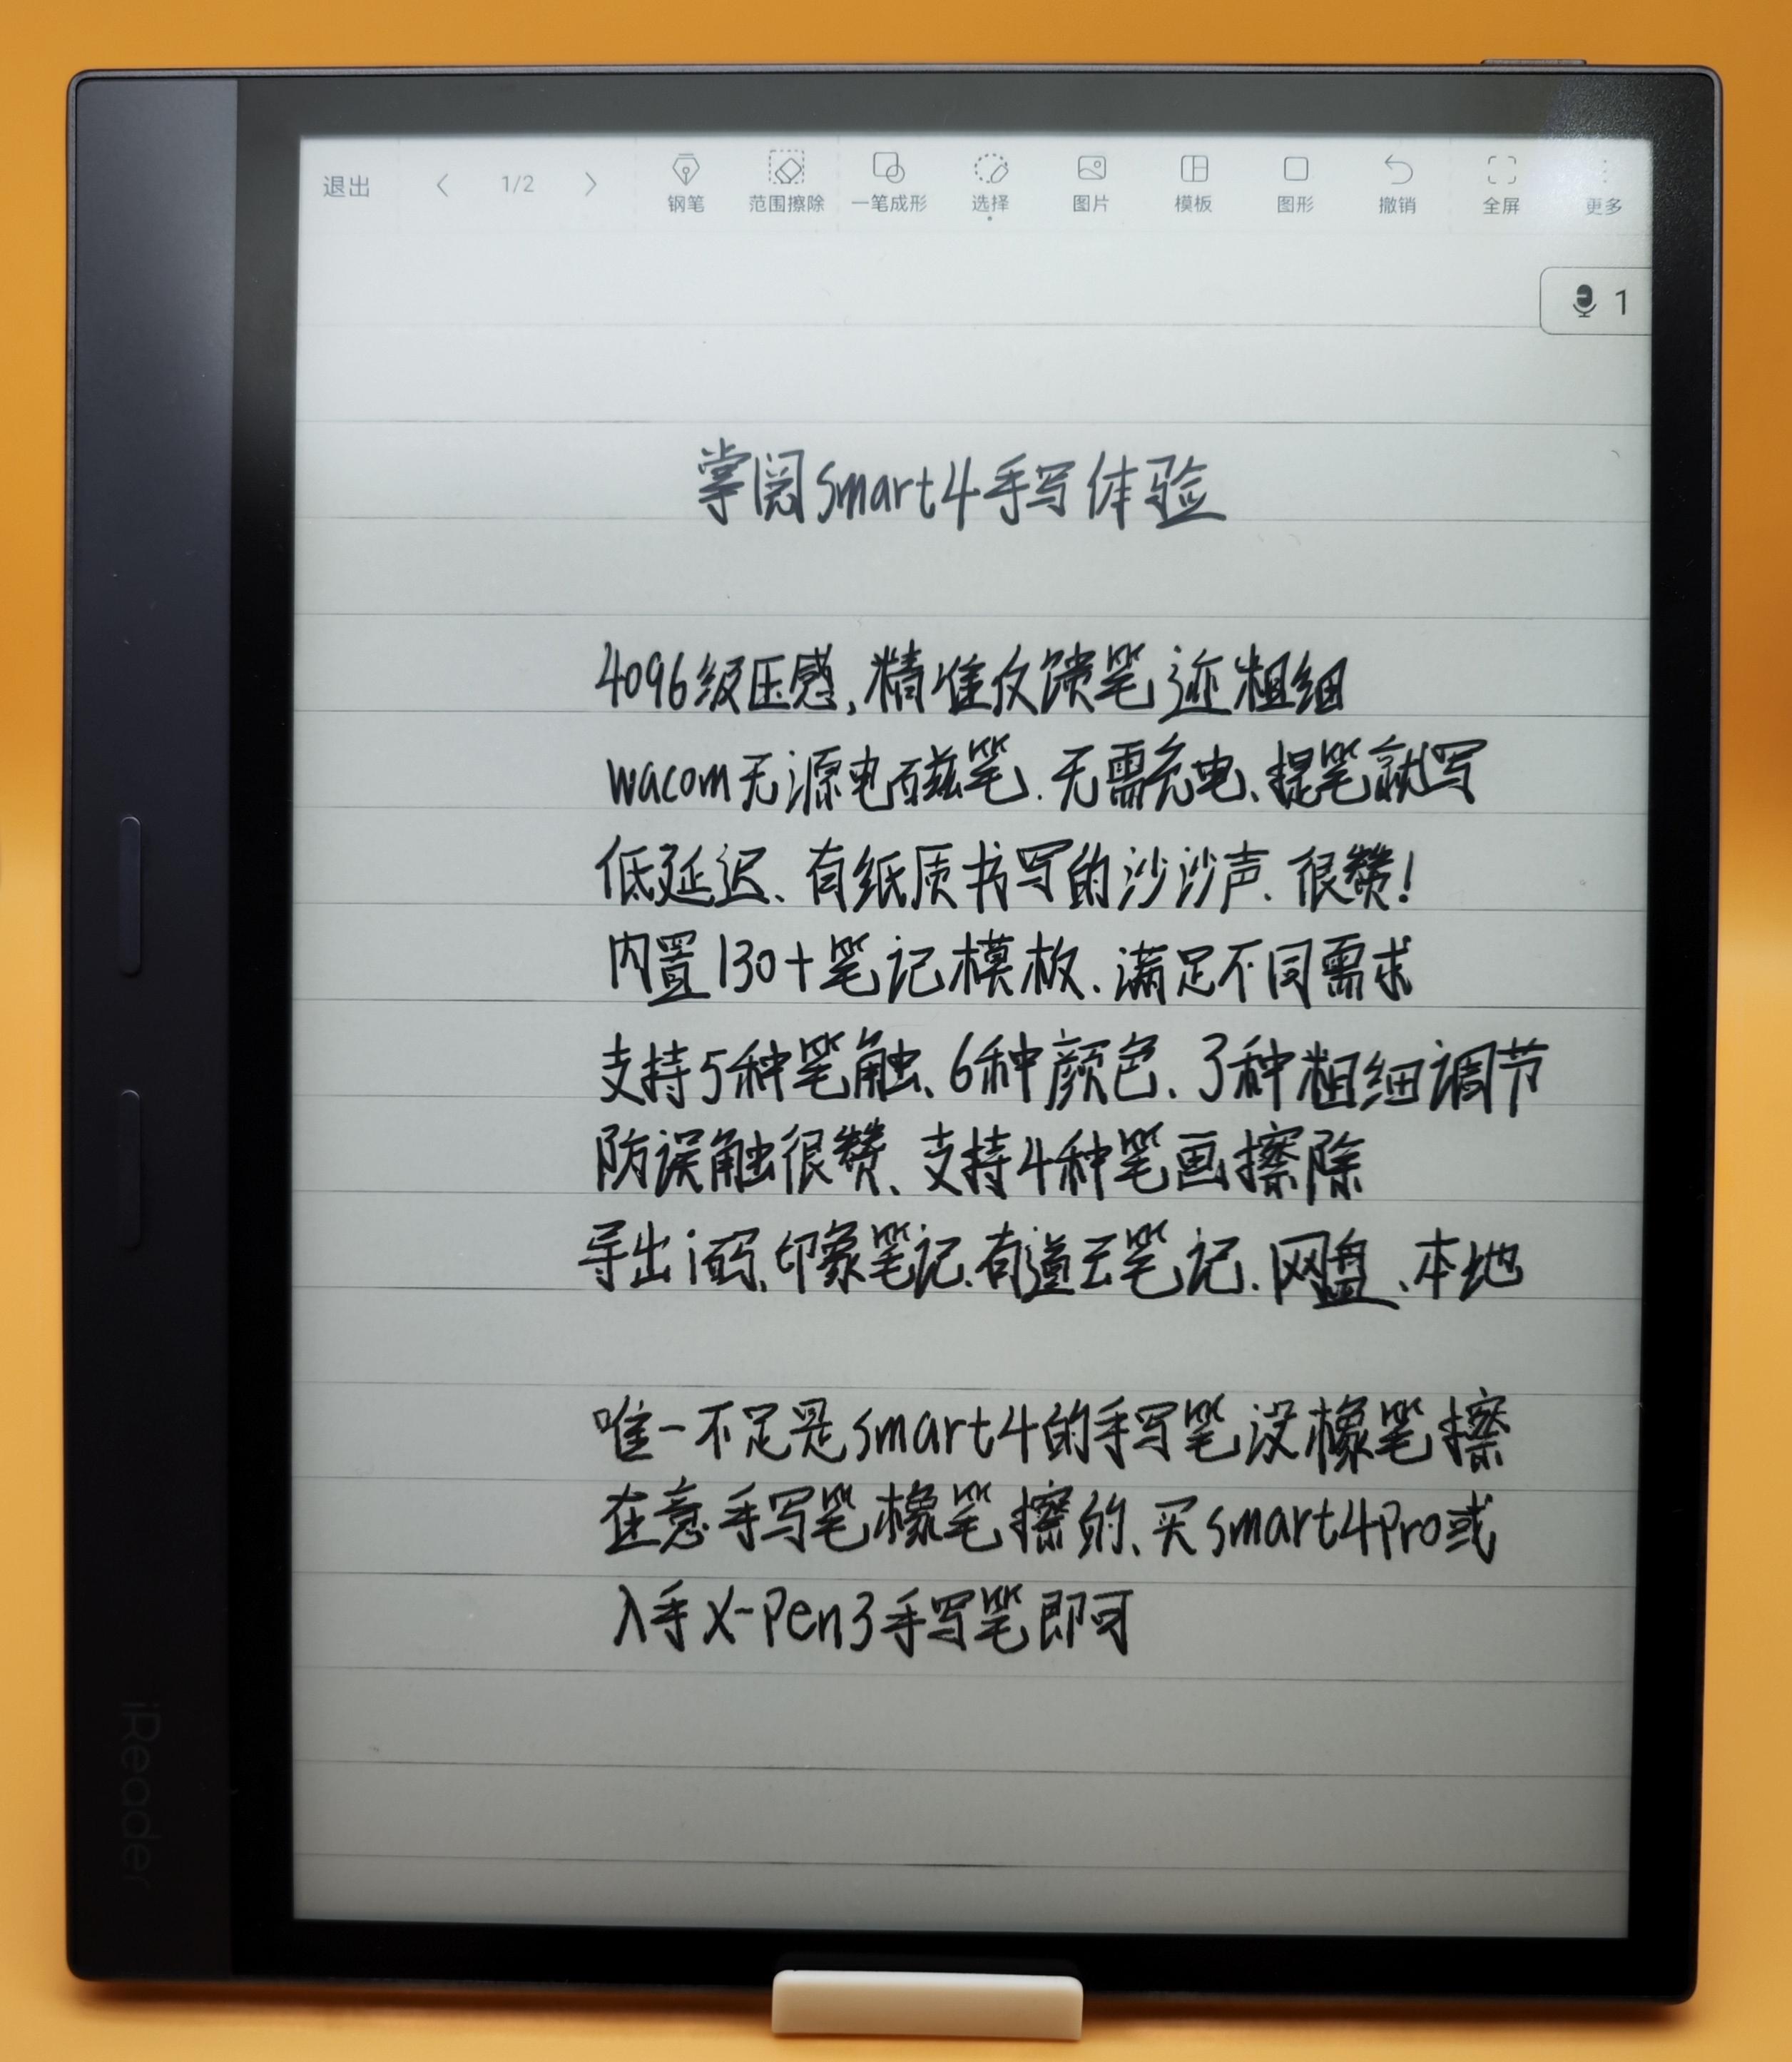 退出 < 1/2 > 钢笔 范围擦除 一笔成形 选择 图片 模板 图形 撤销 全屏 更多
1
掌阅smart4手写体验
4096级压感,精准反馈笔迹粗细
wacom无源电磁笔、无需充电、提笔就写
低延迟、有纸质书写的沙沙声、很赞!
内置130+笔记模板、满足不同需求
支持5种笔触、6种颜色、3种粗细调节
防误触很赞、支持4种笔画擦除
导出i码、印象笔记、有道云笔记、网盘、本地
唯一不足是smart4的手写笔没橡笔擦
在意手写笔橡笔擦的、买smart4Pro或
入手X-Pen3手写笔即可
iReader